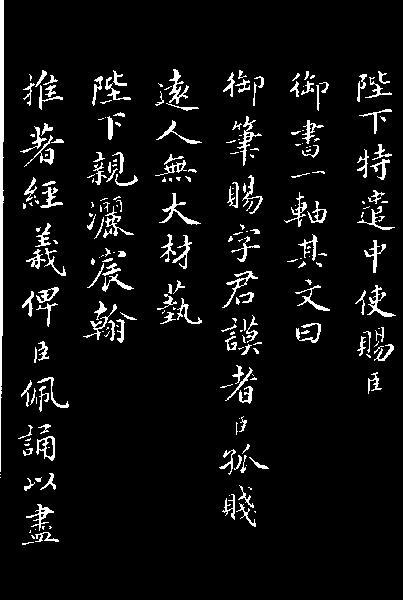 陛下特遣中使賜臣
御書一軸其文曰
御筆賜字君謨者臣孤賤
遠人無大材藝
陛下親灑宸翰
推著經義俾臣佩誦以盡